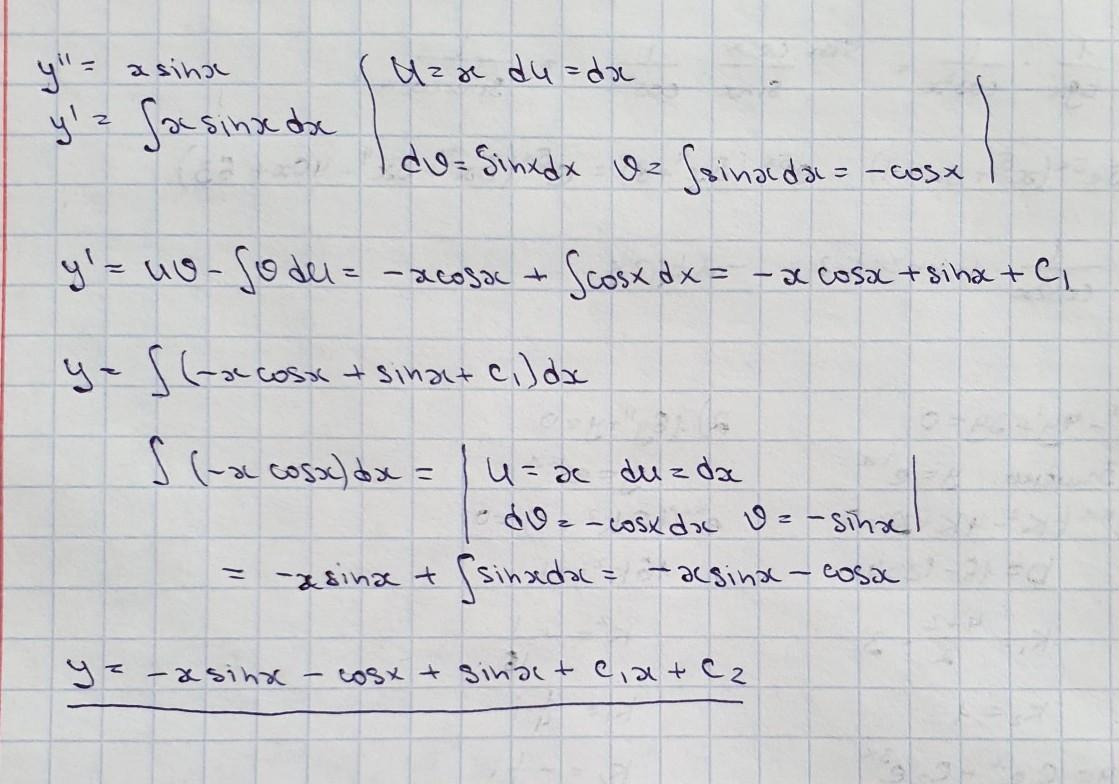 y'' = x sinx | u = x du = dx
y' = ∫x sinx dx | dv = Sinxdx v = ∫sinxdx = -cosx |
y' = uv - ∫v du = -xcosx + ∫cosx dx = -x cosx + sinx + C₁
y = ∫(-x cosx + sinx + c₁)dx
∫ (-x cosx)dx = | u = x du = dx
dv = -cosx dx v = -sinx |
= -x sinx + ∫sinxdx = -xsinx - cosx
y = -x sinx - cosx + sinx + c₁x + c₂